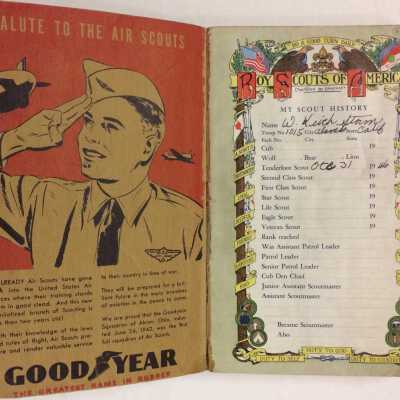 ALUTE TO THE AIR SCOUTS
ALREADY Air Scouts have gone
into the United States Air
ces where their training stands
m in good stead. And this new
cialized branch of Scouting is
than two years old!
With their knowledge of the laws
and rules of flight, Air Scouts pre-
and render valuable service
to their country in time of war.
They will be prepared for a bril-
liant future in the many branches
of aviation in the peace to come.
We are proud that the Goodyear
Squadron of Akron, Ohio, char-
tered June 26, 1942, was the first
full squadron of Air Scouts.
GOODYEAR
THE GREATEST NAME IN RUBBER
DO A GOOD TURN DAILY
BOY SCOUTS OF AMERICA
MY SCOUT HISTORY
Name W. Keith
Troop No. 1015 City Calif
Pack No. City State
Cub 19
Wolf Bear Lion
Tenderfoot Scout Oct 31 19
Second Class Scout 19
First Class Scout 19
Star Scout 19
Life Scout 19
Eagle Scout 19
Veteran Scout 19
Rank reached
Was Assistant Patrol Leader
Patrol Leader
Senior Patrol Leader
Cub Den Chief
Junior Assistant Scoutmaster
Assistant Scoutmaster
Became Scoutmaster
Also
DUTY TO GOD
DUTY TO SELF
DUTY TO OTHERS